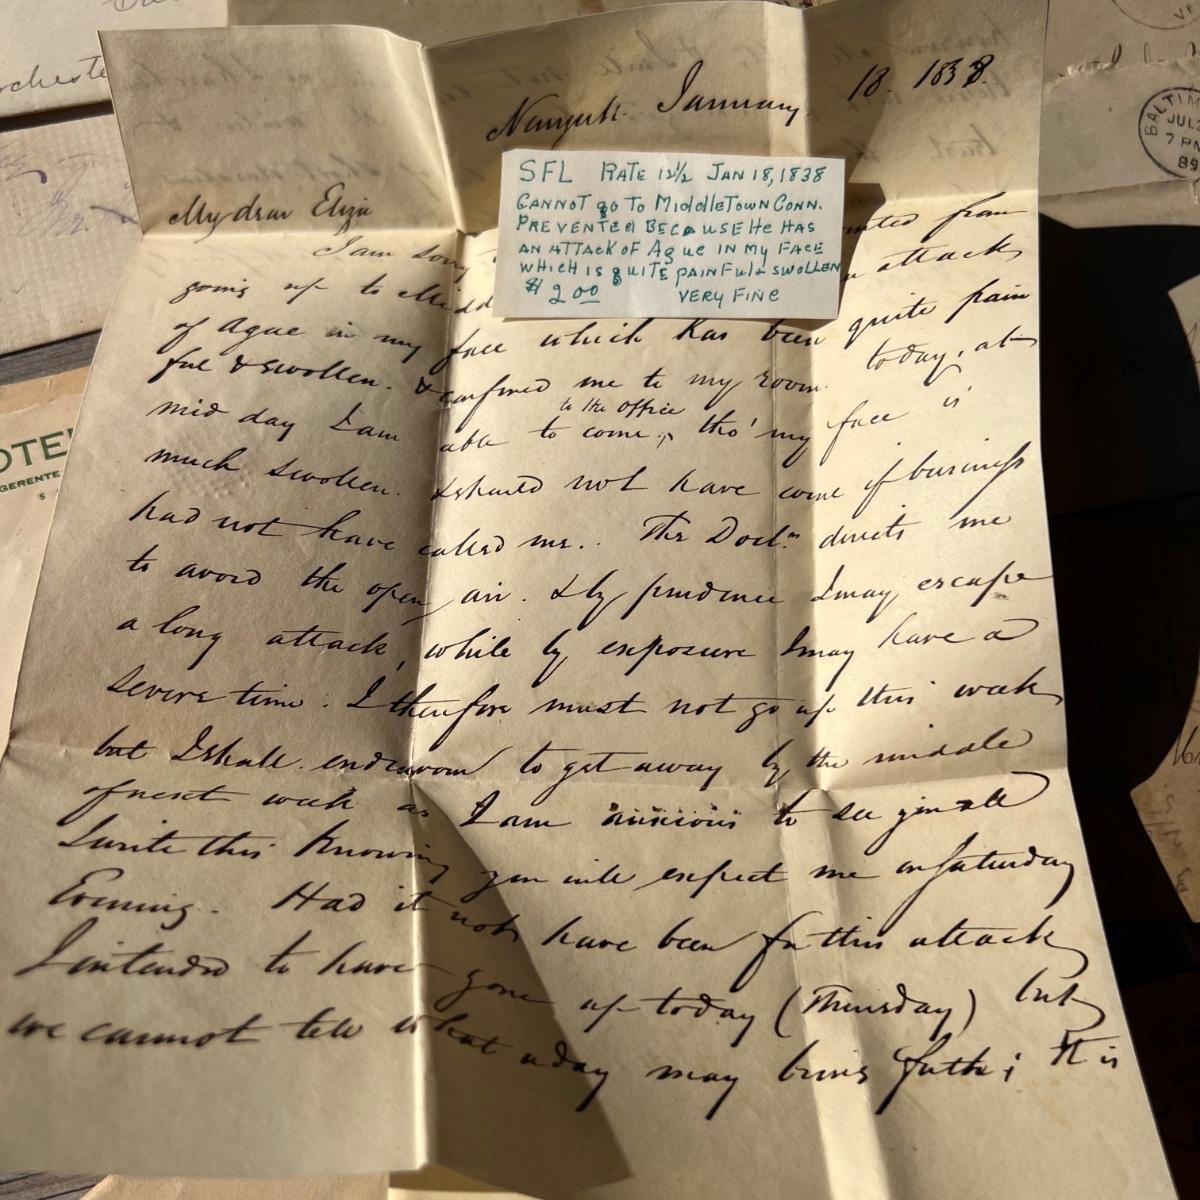 New York January 18. 1838.
SFL RATE 12½ JAN 18, 1838
CANNOT go TO MiddleTOWN CONN.
PREVENTED BECAUSE He HAS
AN ATTACK OF Ague IN MY FACE
WHICH IS QUITE PAINFUL & SWOLLEN
$2.00 VERY FINE
My dear Eliza
I am sorry
nted from
going up to Midd
attack
of Ague in my face which has been quite pain
ful & swollen. & confined me to my room. today, at
mid day I am able to come to the office, tho' my face is
much swollen. & should not have come if business
had not have called me.. The Doctr. directs me
to avoid the open air. & by prudence I may escape
a long attack, while by exposure I may have a
severe time. I therefore must not go up this week
but I shall endeavour to get away by the middle
of next week as I am anxious to see you all
I write this knowing you will expect me on Saturday
Evening. Had it not have been for this attack
I intended to have gone up today (Thursday) but
we cannot tell what a day may bring forth; It is
BALTIM
JUL
7 PM
89
OTEL
GERENTE